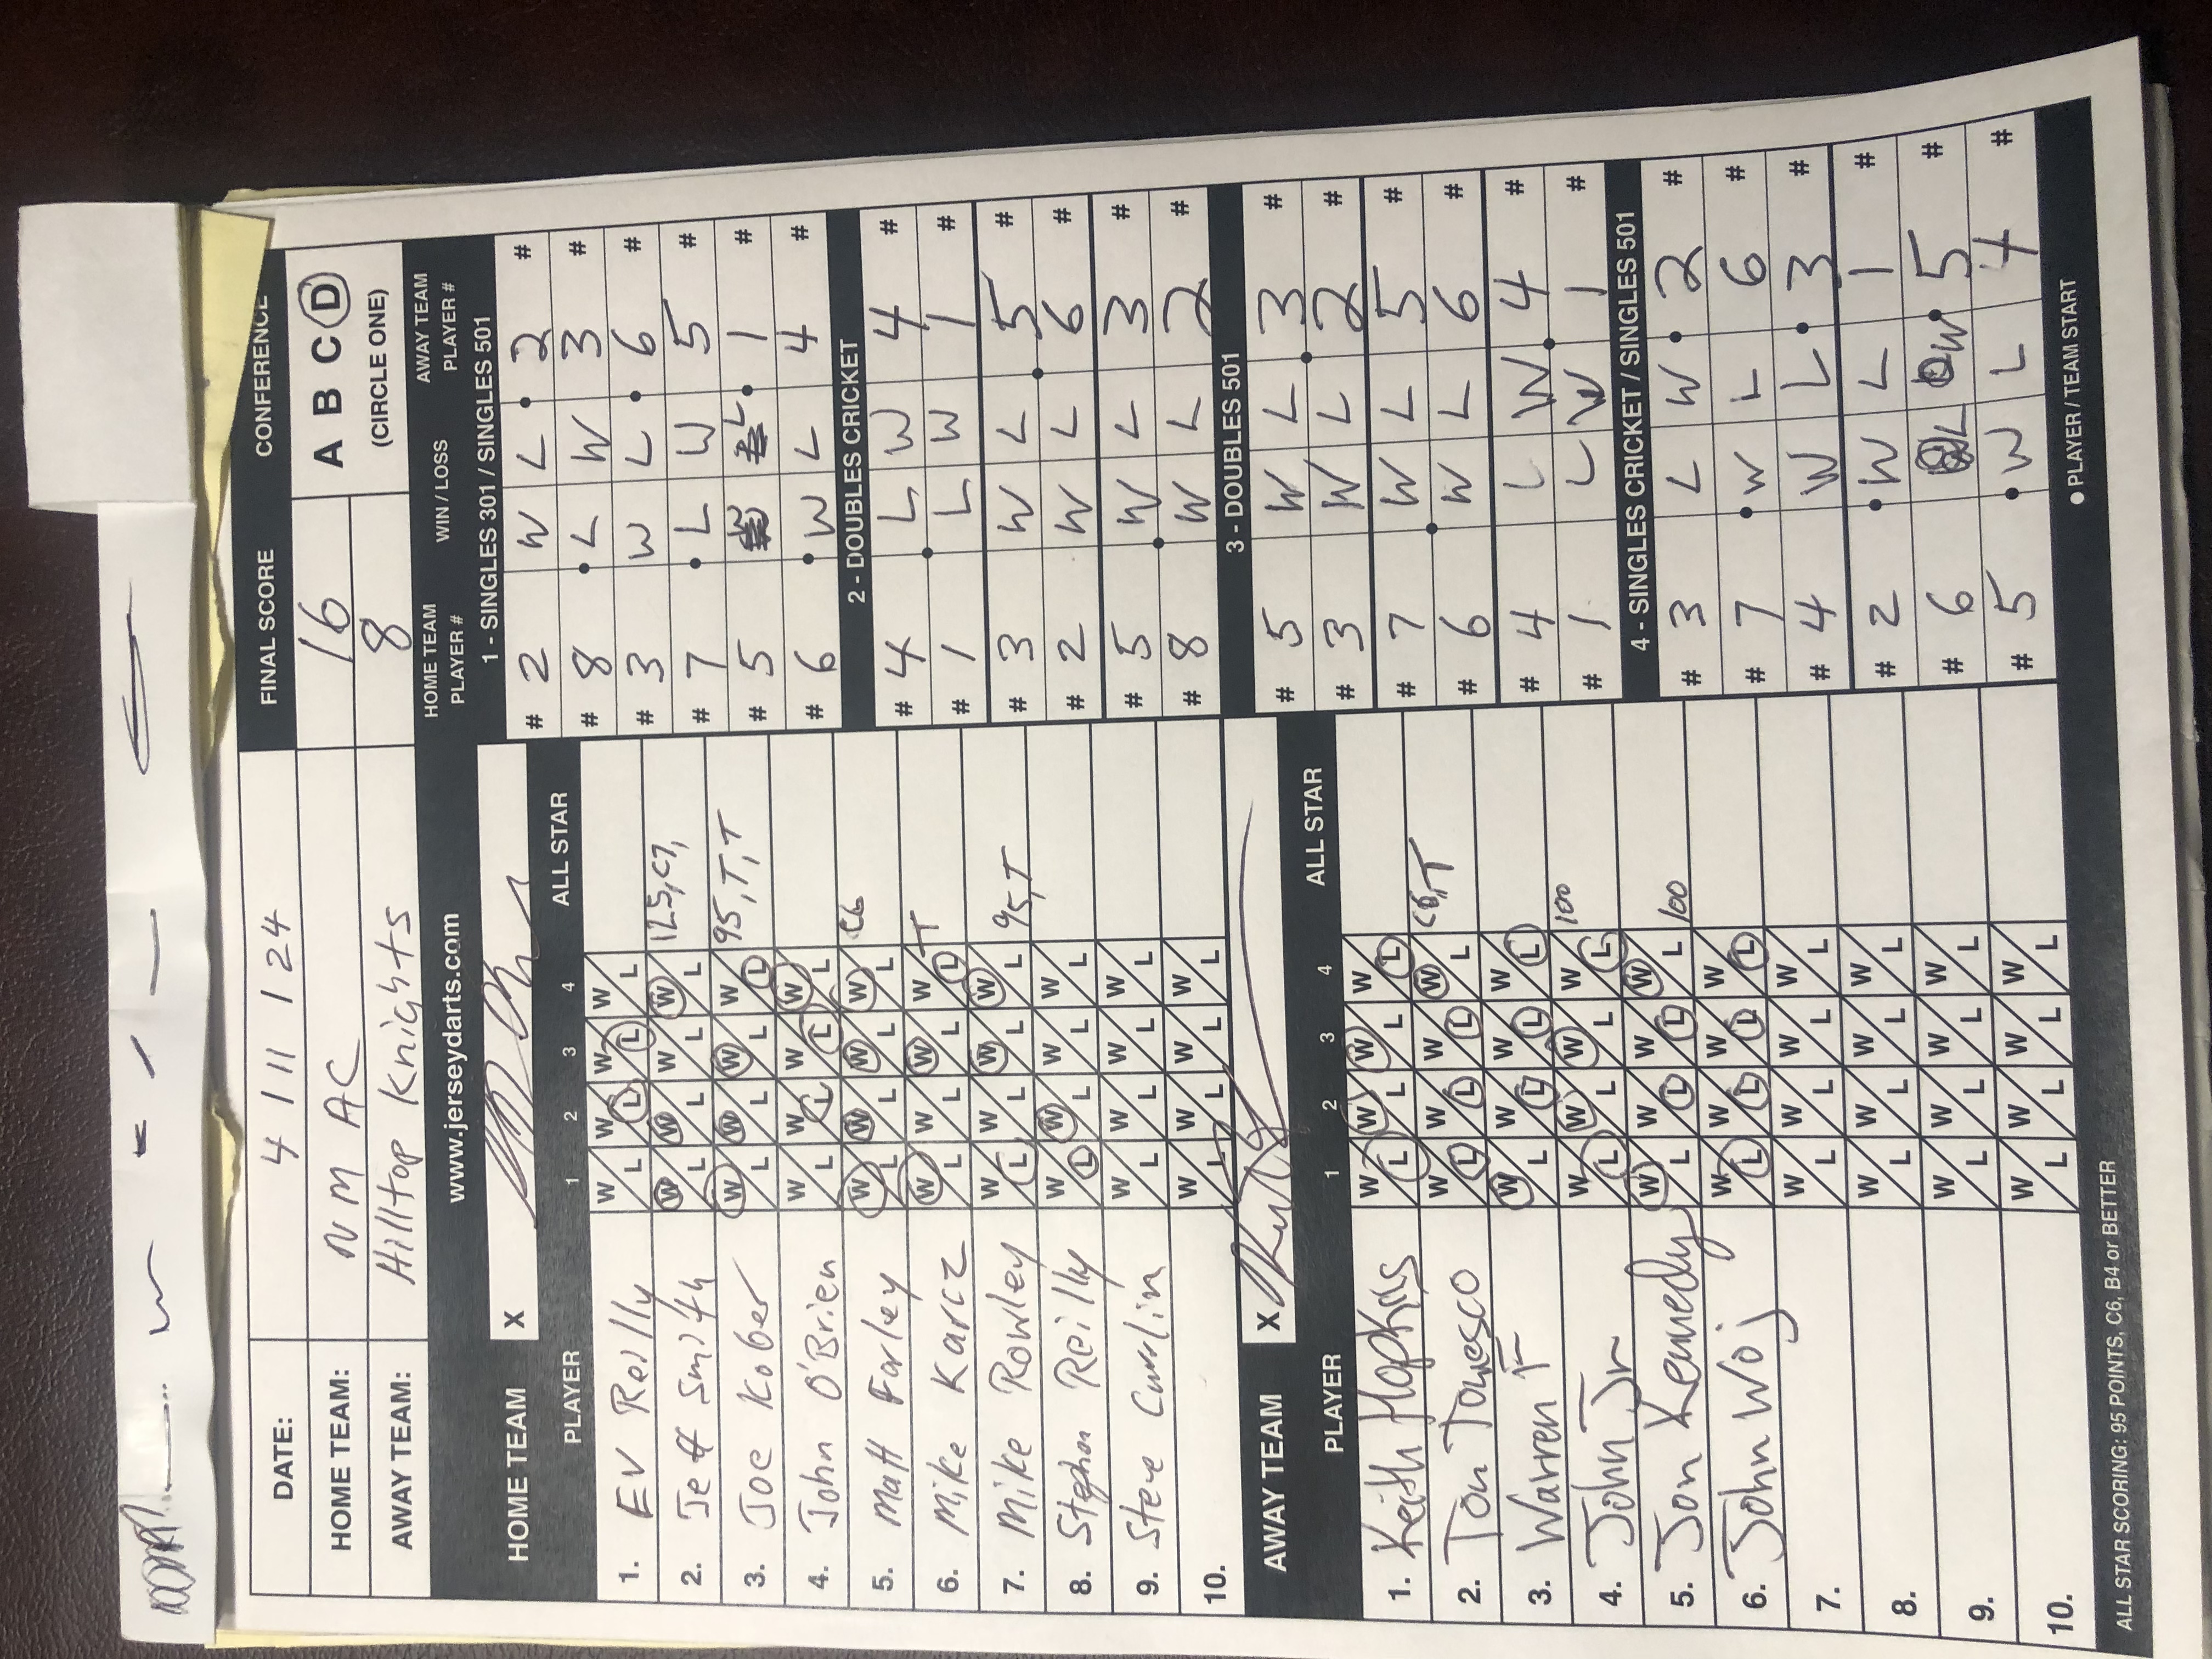 DATE: 4 / 11 / 24 FINAL SCORE CONFERENCE
HOME TEAM: NM AC 16 A B C D
AWAY TEAM: Hilltop Knights 8 (CIRCLE ONE)
www.jerseydarts.com
HOME TEAM X
PLAYER 1 2 3 4 ALL STAR
1. EV Reilly W/L W/L W/L W/L
2. Jeff Smith W/L W/L W/L W/L 125, C7,
3. Joe Kober W/L W/L W/L W/L 95, T, T
4. John O'Brien W/L W/L W/L W/L
5. Matt Farley W/L W/L W/L W/L C6
6. Mike Karcz W/L W/L W/L W/L T
7. Mike Rowley W/L W/L W/L W/L 95, T
8. Stephen Reilly W/L W/L W/L W/L
9. Steve W/L W/L W/L W/L
10. W/L W/L W/L W/L
AWAY TEAM X
PLAYER 1 2 3 4 ALL STAR
1. Keith W/L W/L W/L W/L
2. W/L W/L W/L W/L C6, T
3. Warren F W/L W/L W/L W/L
4. John Jr W/L W/L W/L W/L 100
5. Jon Kennedy W/L W/L W/L W/L 100
6. John Woj W/L W/L W/L W/L
7. W/L W/L W/L W/L
8. W/L W/L W/L W/L
9. W/L W/L W/L W/L
10. W/L W/L W/L W/L
ALL STAR SCORING: 95 POINTS, C6, B4 or BETTER
HOME TEAM PLAYER # WIN / LOSS AWAY TEAM PLAYER #
1 - SINGLES 301 / SINGLES 501
# 2 W L 2 #
# 8 L W 3 #
# 3 W L 6 #
# 7 L W 5 #
# 5 W L 1 #
# 6 W L 4 #
2 - DOUBLES CRICKET
# 4 L W 4 #
# 1 L W 1 #
# 3 W L 5 #
# 2 W L 6 #
# 5 W L 3 #
# 8 W L 2 #
3 - DOUBLES 501
# 5 W L 3 #
# 3 W L 2 #
# 7 W L 5 #
# 6 W L 6 #
# 4 L W 4 #
# 1 L W 1 #
4 - SINGLES CRICKET / SINGLES 501
# 3 L W 2 #
# 7 W L 6 #
# 4 W L 3 #
# 2 W L 1 #
# 6 L W 5 #
# 5 W L 4 #
● PLAYER / TEAM START